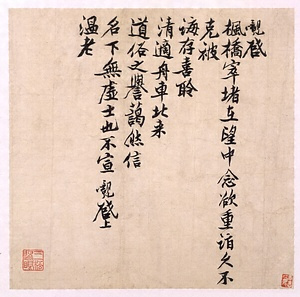 啟
楓橋窣堵在望中念欲重詣久不
克被
誨存喜聆
清適舟車北来
道俗之譽藹然信
名下無虛士也不宣 啟上
溫老